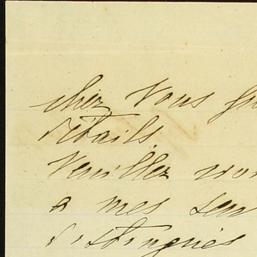 chez vous
détails.
Veuillez
à mes sen
distingués